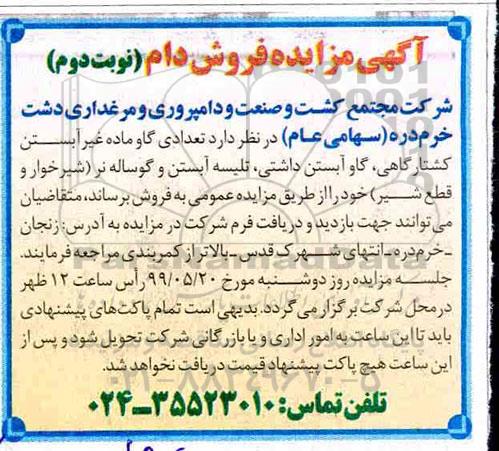 آگهی مزایده فروش دام (نوبت دوم)
شرکت مجتمع کشت و صنعت و دامپروری و مرغداری دشت
خرم‌دره (سهامی عام) در نظر دارد تعدادی گاو ماده غیر آبستن
کشتارگاهی، گاو آبستن داشتی، تلیسه آبستن و گوساله نر (شیرخوار و
قطع شیر) خود را از طریق مزایده عمومی به فروش برساند، متقاضیان
می‌توانند جهت بازدید و دریافت فرم شرکت در مزایده به آدرس: زنجان
-خرم‌دره-انتهای شهرک قدس-بالاتر از کمربندی مراجعه فرمایند.
جلسه مزایده روز دوشنبه مورخ ۹۹/۰۵/۲۰ رأس ساعت ۱۲ ظهر
در محل شرکت برگزار می گردد. بدیهی است تمام پاکت‌های پیشنهادی
باید تا این ساعت به امور اداری و یا بازرگانی شرکت تحویل شود و پس از
این ساعت هیچ پاکت پیشنهاد قیمت دریافت نخواهد شد.
۰۲۱-۸۸۳۴۹۶۷۰-۵
تلفن تماس: ۳۵۵۲۳۰۱۰-۰۲۴